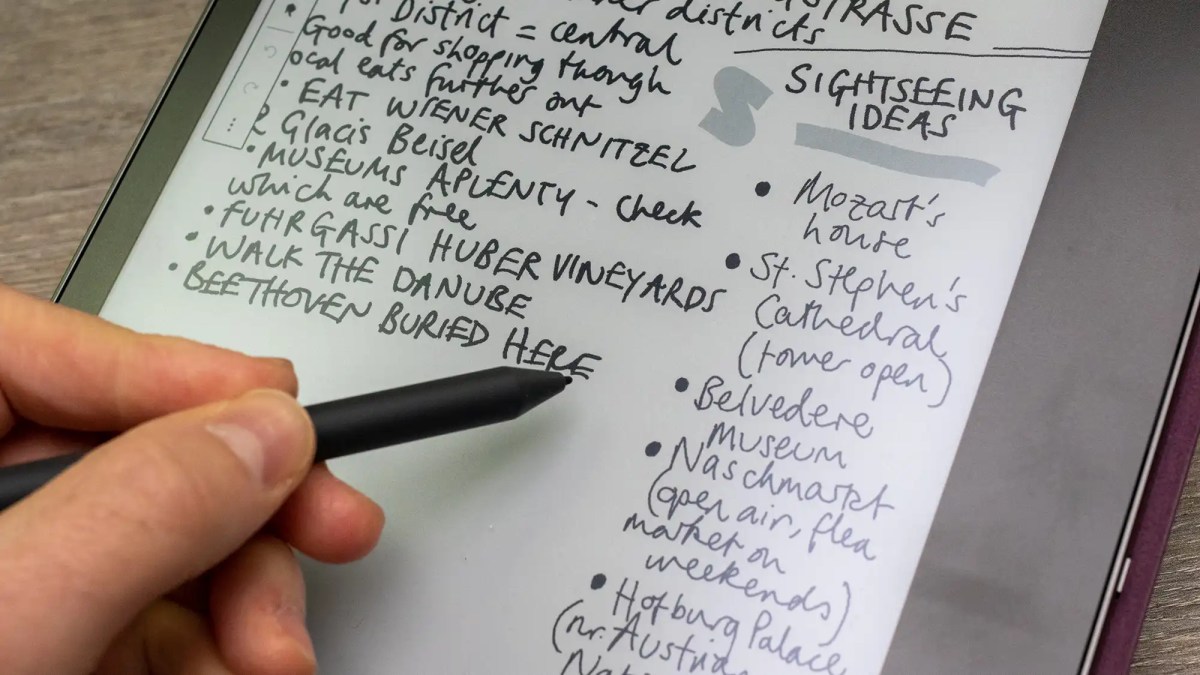 districts
District = central
Good for shopping though
ocal eats further out
• EAT WIENER SCHNITZEL
@ Glacis Beisel
• MUSEUMS APLENTY - check
which are free
• FUHRGASSI HUBER VINEYARDS
• WALK THE DANUBE
• BEETHOVEN BURIED HERE
STRASSE
SIGHTSEEING
IDEAS
• Mozart's
house
• St. Stephen's
Cathedral
(tower open)
• Belvedere
Museum
• Naschmarkt
(open air, flea
market on
weekends)
• Hofburg Palace
(nr. Austria